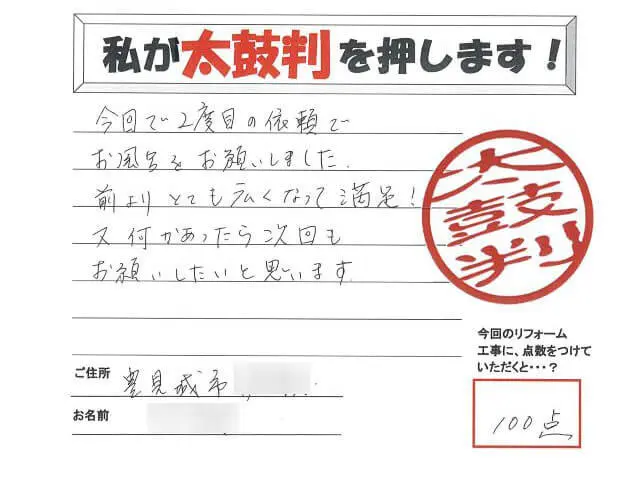 私が太鼓判を押します！
今回で2度目の依頼で
お風呂をお願いしました.
前よりとても広くなって満足!
又何かあったら次回も
お願いしたいと思います.
太鼓判
今回のリフォーム
工事に、点数をつけて
いただくと・・・？
ご住所 豊見城市
お名前
100点